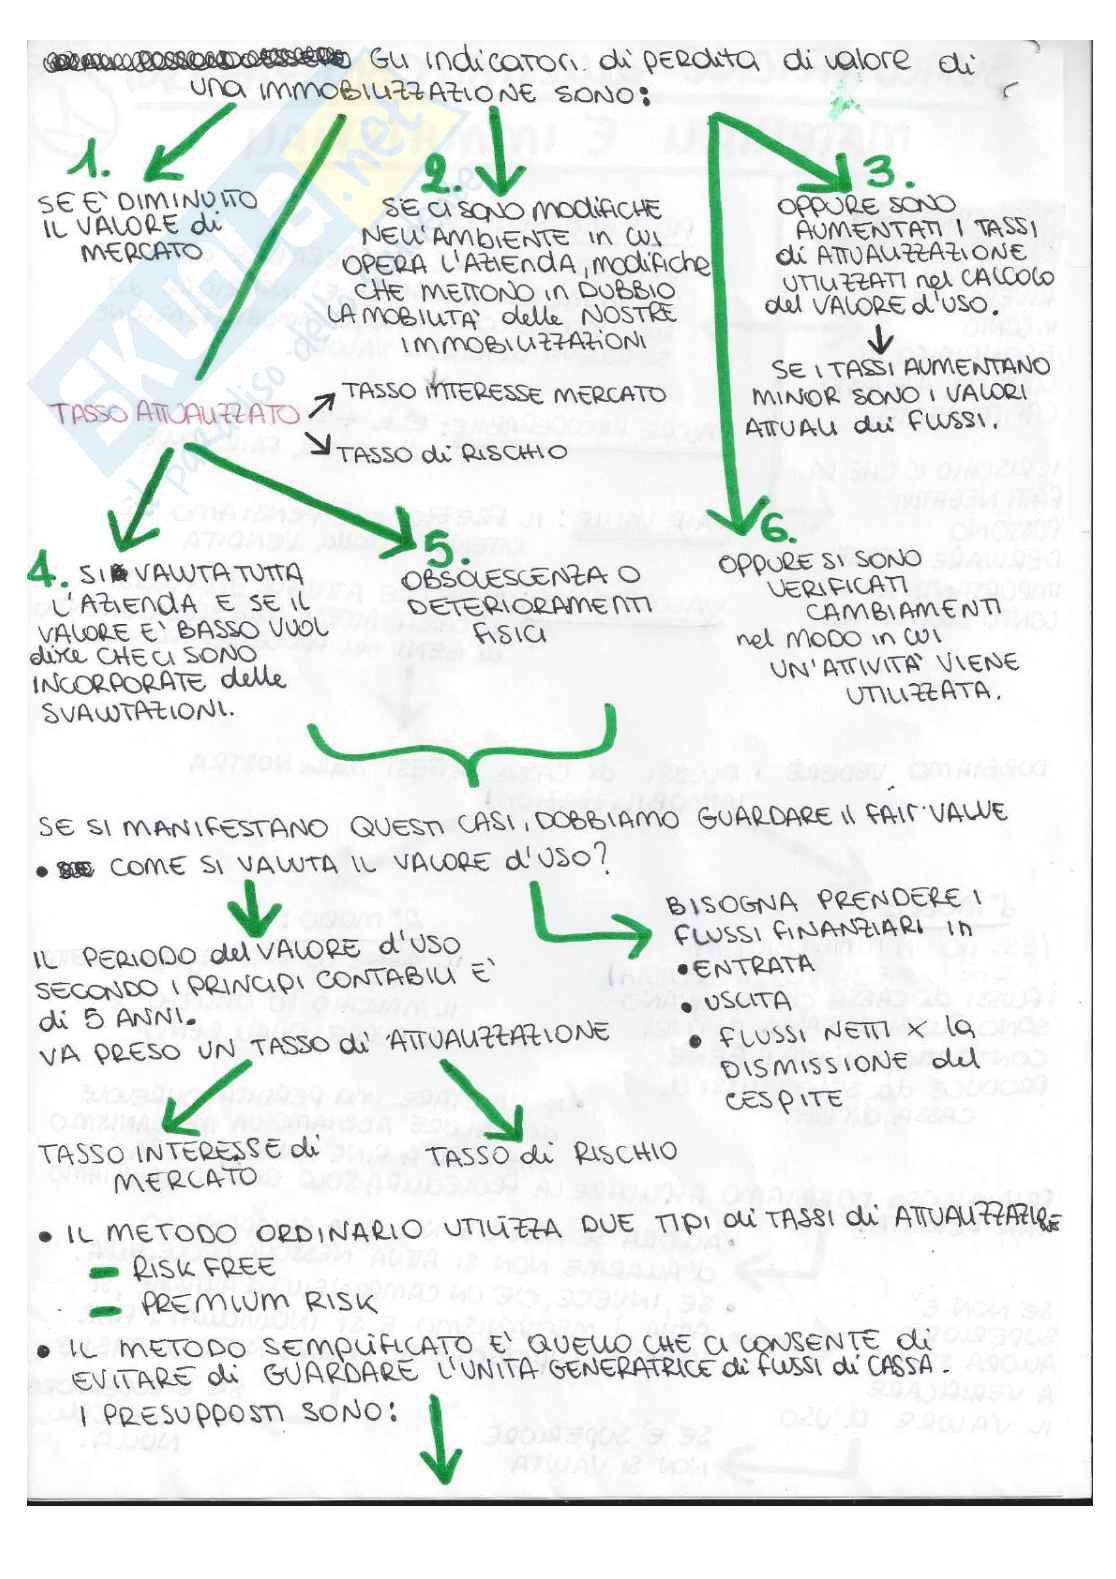 Gli indicatori di perdita di valore di
una IMMOBILIZZAZIONE SONO:
1.
SE E' DIMINUITO
IL VALORE di
MERCATO
2.
SE CI SONO MODIFICHE
NELL'AMBIENTE in CUI
OPERA L'AZIENDA, modifiche
CHE METTONO in DUBBIO
LA MOBILITA' delle NOSTRE
IMMOBILIZZAZIONI
3.
OPPURE SONO
AUMENTATI I TASSI
di ATTUALIZZAZIONE
UTILIZZATI nel CALCOLO
del VALORE d'USO.
SE I TASSI AUMENTANO
MINOR SONO I VALORI
ATTUALI dei FLUSSI.
TASSO ATTUALIZZATO
TASSO INTERESSE MERCATO
TASSO di RISCHIO
4. SI VALUTA TUTTA
L'AZIENDA E SE IL
VALORE E' BASSO VUOL
dire CHE CI SONO
INCORPORATE delle
SVALUTAZIONI.
5.
OBSOLESCENZA O
DETERIORAMENTI
FISICI
6.
OPPURE SI SONO
VERIFICATI
CAMBIAMENTI
nel MODO in CUI
UN'ATTIVITA' VIENE
UTILIZZATA.
SE SI MANIFESTANO QUESTI CASI, DOBBIAMO GUARDARE il FAIR VALUE
• COME SI VALUTA IL VALORE d'USO?
IL PERIODO del VALORE d'USO
SECONDO I PRINCIPI CONTABILI E'
di 5 ANNI.
VA PRESO UN TASSO di ATTUALIZZAZIONE
BISOGNA PRENDERE I
FLUSSI FINANZIARI in
• ENTRATA
• USCITA
• FLUSSI NETTI X la
DISMISSIONE del
CESPITE
TASSO INTERESSE di
MERCATO
TASSO di RISCHIO
• IL METODO ORDINARIO UTILIZZA DUE TIPI di TASSI di ATTUALIZZAZIRE
- RISK FREE
- PREMIUM RISK
• IL METODO SEMPLIFICATO E' QUELLO CHE CI CONSENTE di
EVITARE di GUARDARE L'UNITA GENERATRICE di flussi di CASSA.
I PRESUPPOSTI SONO:
SKUOLA.net